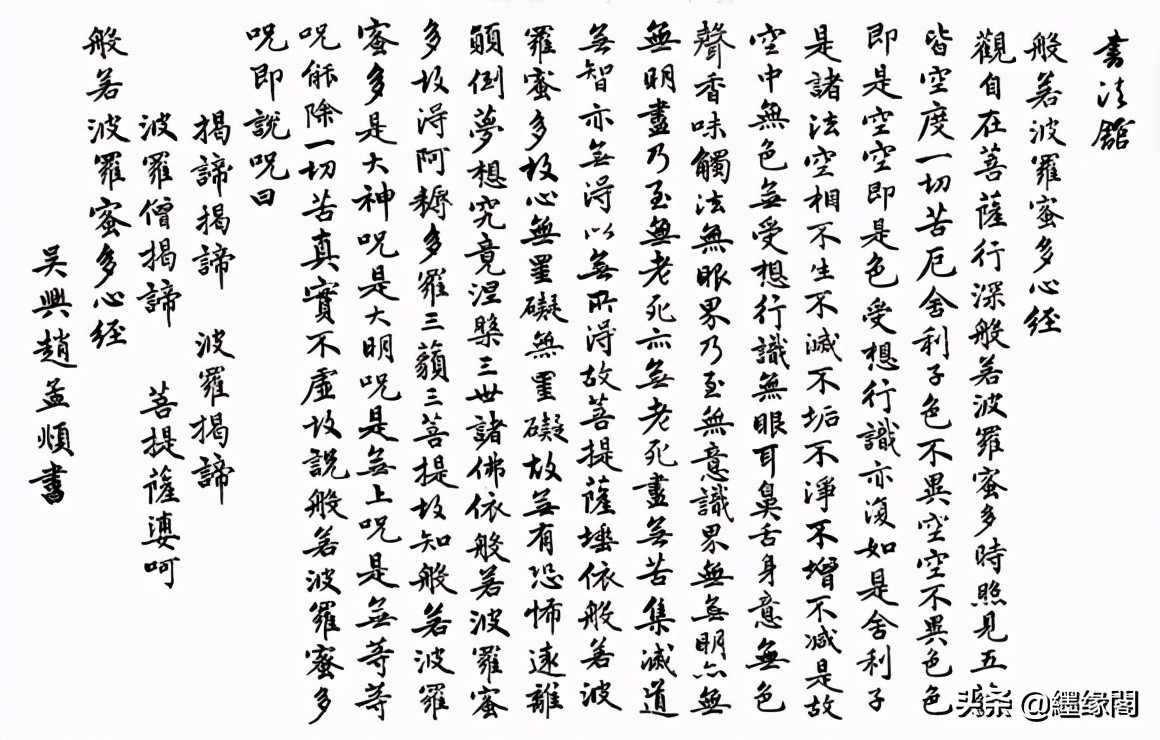 書法館
般若波羅蜜多心经
觀自在菩薩行深般若波羅蜜多時照見五
皆空度一切苦厄舍利子色不異空空不異色色
即是空空即是色受想行識亦復如是舍利子
是諸法空相不生不滅不垢不淨不增不减是故
空中無色無受想行識無眼耳鼻舌身意無色
聲香味觸法無眼界乃至無意識界無無明亦無
無明盡乃至無老死亦無老死盡無苦集滅道
無智亦無得以無所得故菩提薩埵依般若波
羅蜜多故心無罣礙無罣礙故無有恐怖遠離
顛倒夢想究竟涅槃三世諸佛依般若波羅蜜
多故得阿耨多羅三藐三菩提故知般若波羅
蜜多是大神呪是大明呪是無上呪是無等等
呪能除一切苦真實不虛故說般若波羅蜜多
呪即說呪曰
揭諦揭諦 波羅揭諦
波羅僧揭諦 菩提薩婆呵
般若波羅蜜多心经
吴興趙孟頫書
头条 @繮缘閣